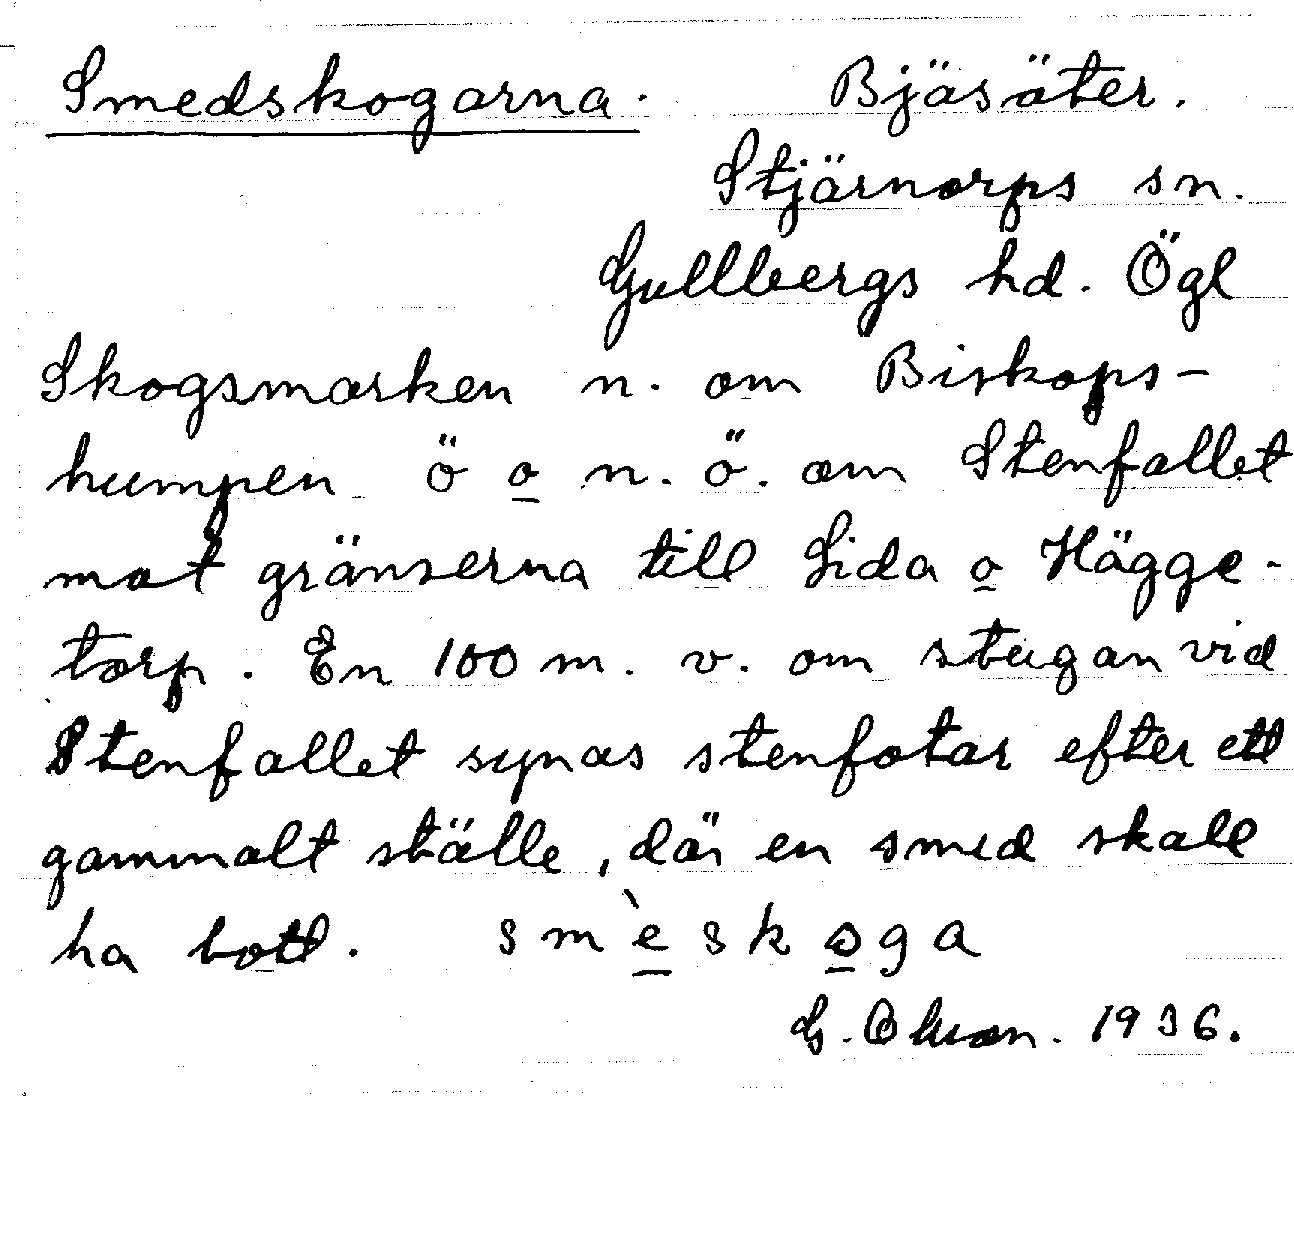 Smedskogarna. Bjäsäter.
Stjärnorps sn.
Gullbergs hd. Ögl
Skogsmarken n. om Biskops-
humpen ö o n. ö. om Stenfallet
mot gränserna till Lida o Hägge-
torp. En 100 m. v. om stugan vid
Stenfallet synas stenfotar efter ett
gammalt ställe, där en smed skall
ha bott. smèskoga
G. Olson. 1936.